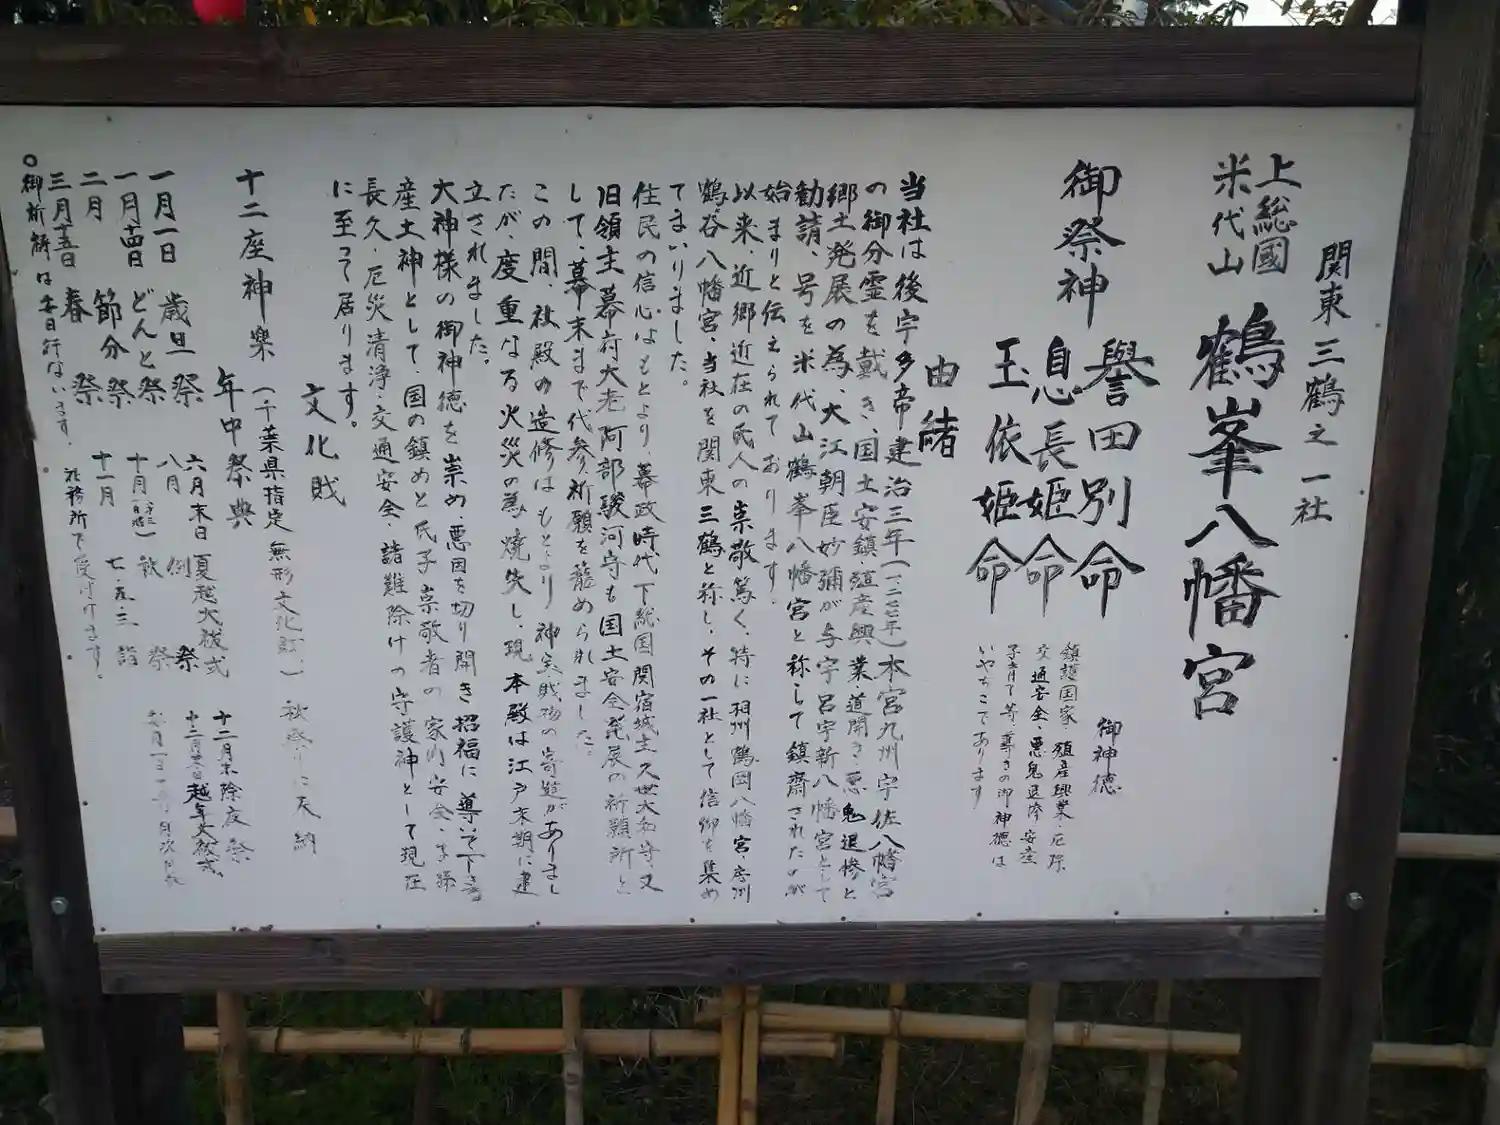 関東三鶴之一社
上総國
米代山
鶴峯八幡宮
御祭神
誉田別命
息長姫命
玉依姫命
御神徳
鎮護国家、殖産興業、厄除
交通安全、悪鬼退惨、安産
子育て等、尊きの御神徳は
いやちこであります
由緒
当社は後宇多帝建治三年(一二七七年)本宮九州宇佐八幡宮
の御分霊を戴き、国土安鎮、殖産興業道開き、悪鬼退惨と
郷土発展の為、大江朝臣妙彌が与宇呂宇新八幡宮として
勧請、号を米代山鶴峯八幡宮と称して鎮齋されたのが
始まりと伝えられております。
以来、近郷近在の民人の崇敬篤く、特に羽州鶴岡八幡宮、房州
鶴谷八幡宮、当社を関東三鶴と称し、その一社として信仰を集め
てまいりました。
住民の信心はもとより、幕政時代下総国関宿城主久世大和守、又
旧領主幕府大老阿部駿河守も国土安全発展の祈願所と
して、幕末まで代参祈願を籠められました。
この間、社殿の造修はもとより神宝、財物の寄進がありまし
たが、度重なる火災の為、焼失し、現本殿は江戸末期に建
立されました。
大神様の御神徳を崇め悪因を切り開き招福に導いて下さる
産土神として、国の鎮めと氏子崇敬者の家内安全、子孫
長久、厄災清浄、交通安全、諸難除けの守護神として現在
に至って居ります。
文化財
十二座神楽(千葉県指定無形文化財)秋祭りに奉納
年中祭典
一月一日 歳旦祭
一月十四日 どんと祭
二月 節分祭
三月十五日 春祭
六月末日 夏越大祓式
八月 例祭
十月 秋祭
十一月 七・五・三詣
十二月末 除夜祭
越年大祓式
○御祈祷は毎日行ないます。社務所で受付けます。